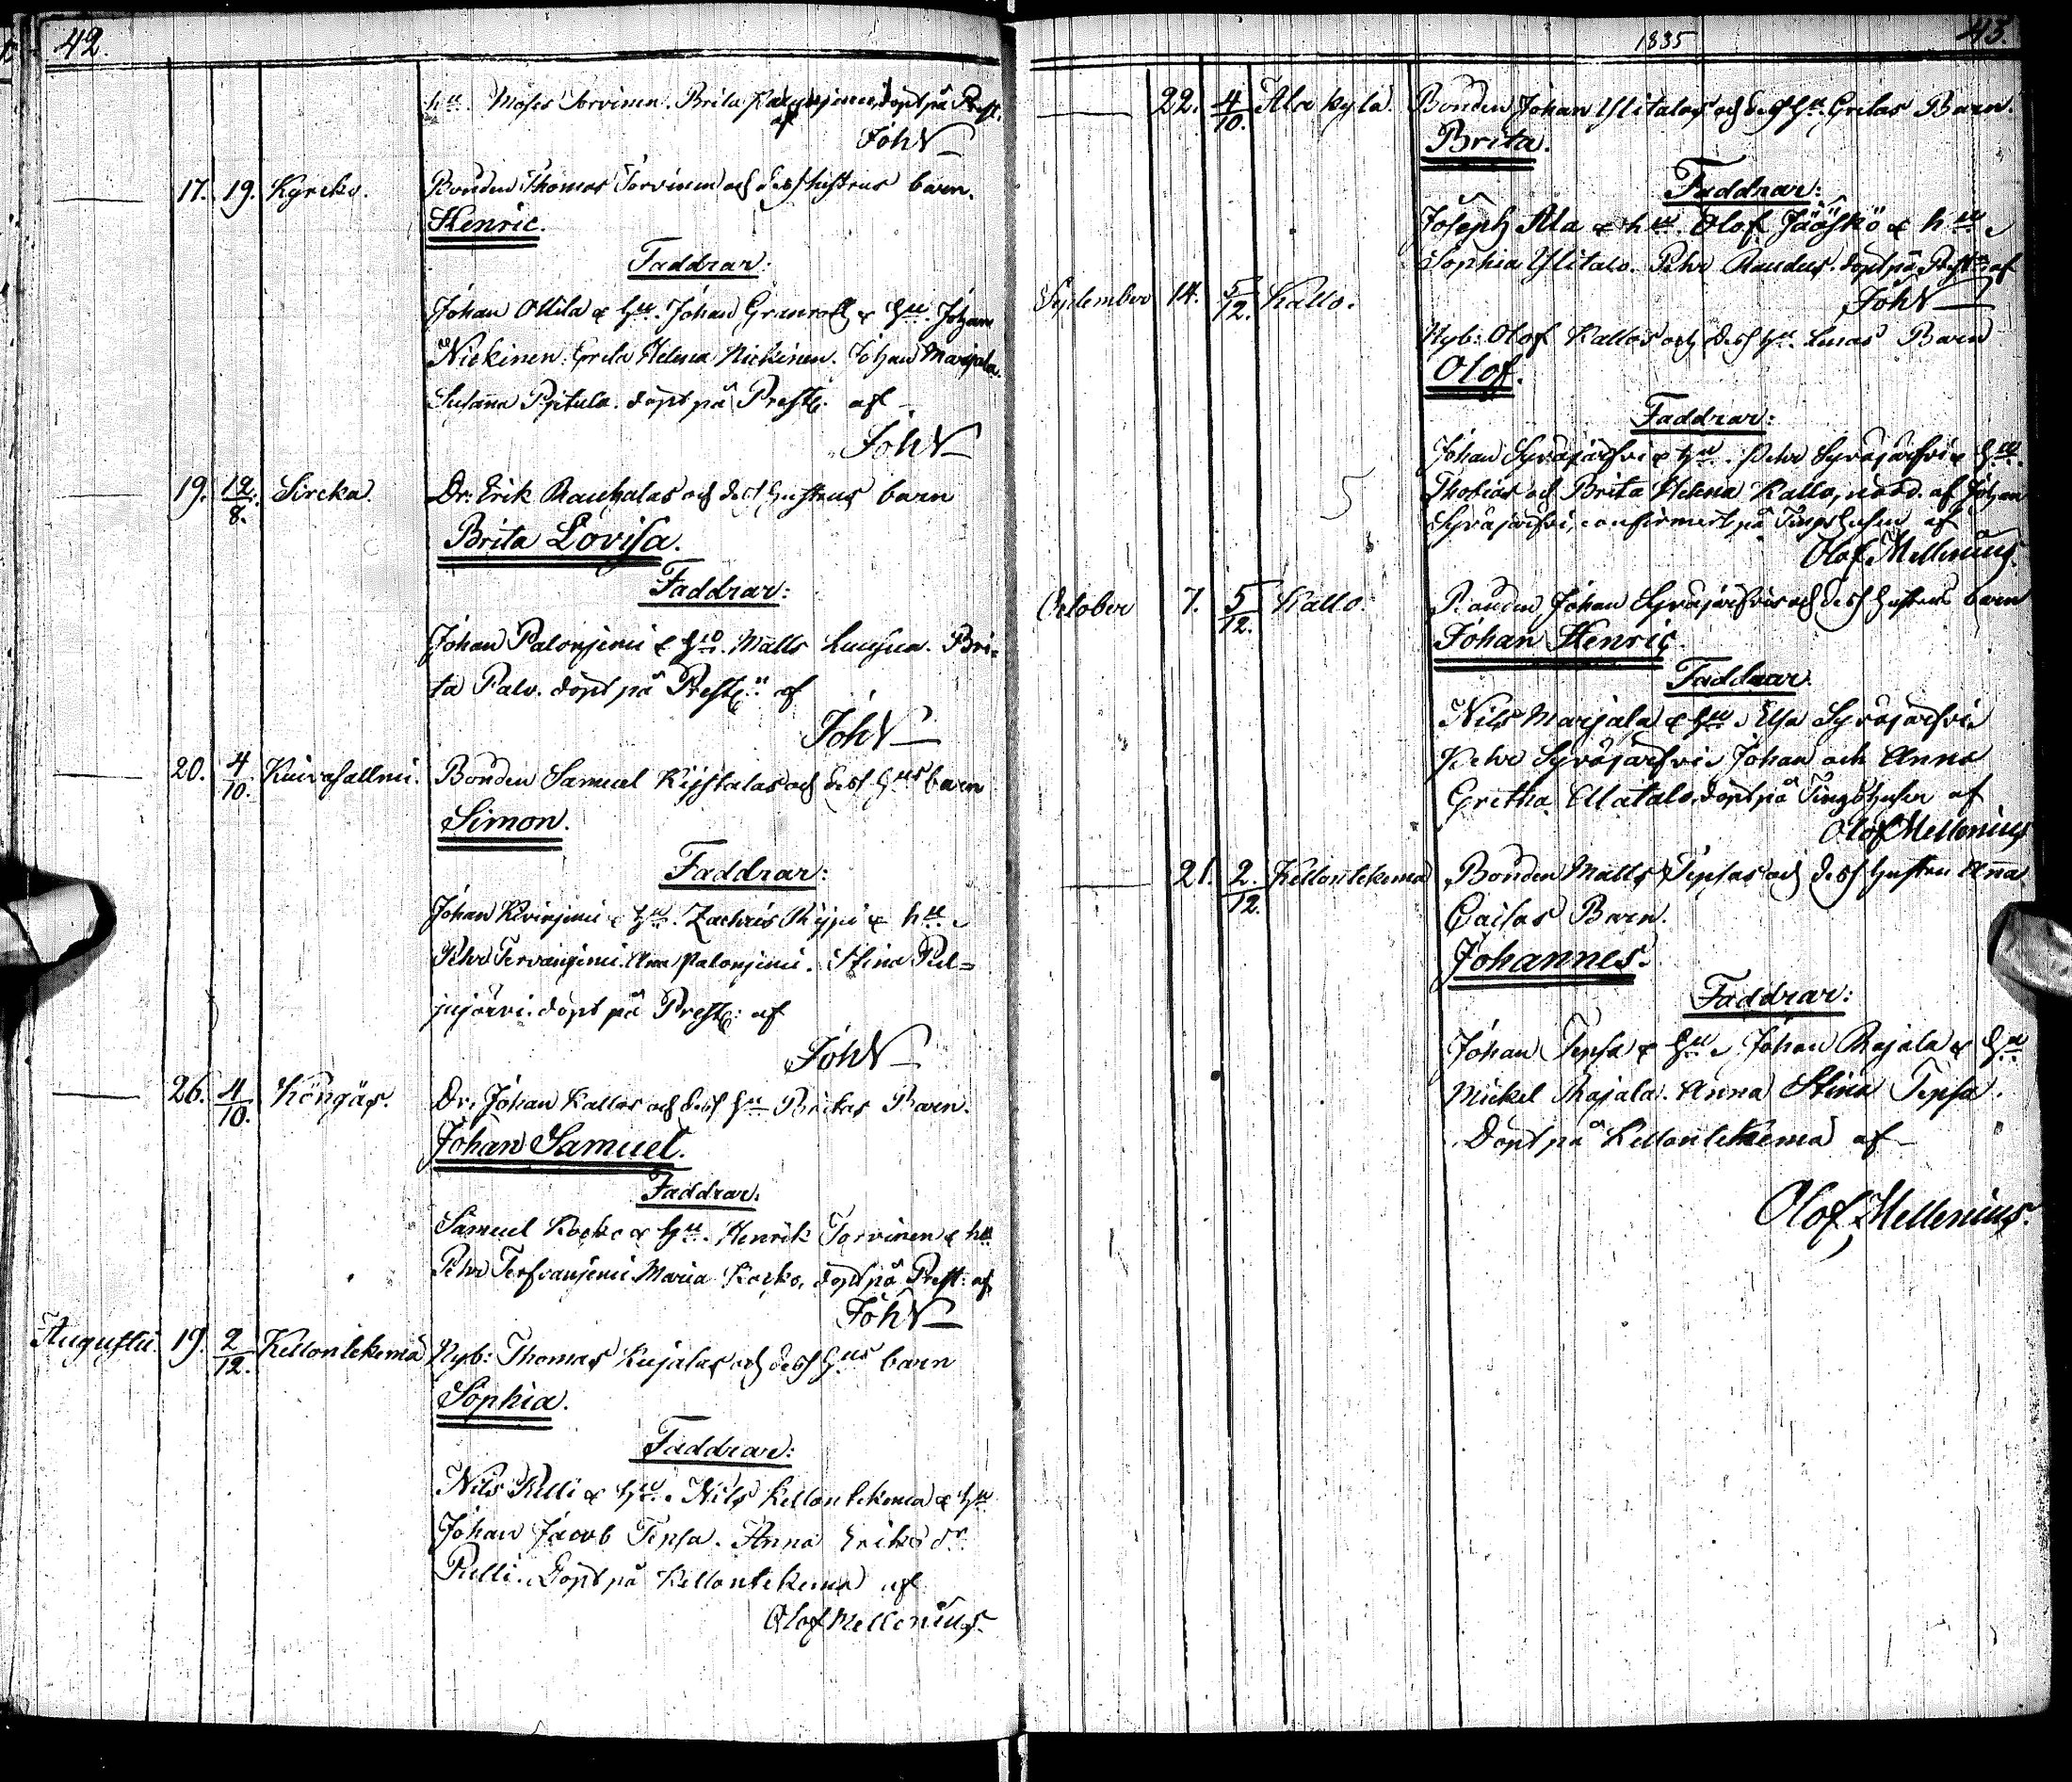 42.
hu. Moses Torvinen. Brita döpt på Prest.
af JohN
17. 19. Kyrcko. Bonden Thomas Torvinen och dess hustrus barn.
Henric.
Faddrar:
Johan Ottila & hu. Johan Granroth & hu. Johan
Niekinen. Greta Helena Niekinen. Johan Marjala.
Susanna Pijtula. döpt på Prestg. af
JohN
19. 19/8. Sircka. Dr. Erik Rauhalas och dess hustrus barn
Brita Lovisa.
Faddrar:
Johan Palonjemi & hu. Matts Luusua. Bri-
ta Palo. döpt på Prestg. af
JohN
20. 4/10. Kuivasallmi. Bonden Samuel Kijstalas och dess hus barn
Simon.
Faddrar:
Johan Kivinjemi & hu. Zachris Thypi & hu.
Pehr Tervanjemi. Anna Palonjemi. Stina Pul=
jujärvi. döpt på Prestg. af
JohN
26. 4/10. Köngäs. Dr. Johan Kallos och dess hu Britas Barn.
Johan Samuel.
Faddrar.
Samuel Kocko & hu. Henrik Torvinen & hu
Pehr Terfvanjemi Maria Kocko, döpt på Prest: af
JohN
Augusti. 19. 2/12. Kellontekemä Nyb: Thomas Kujalas och dess hus barn
Sophia.
Faddrar:
Nils Pulli & hu. Nils Kellontekemä & hu
Johan Jacob Tepsa. Anna Eriks dr.
Pulli. Döpt på Kellontekemä af
Olof Mellenius.
1835
43.
22. 4/10. Alakylä. Bonden Johan Ylitalos och dess hu. Gretas Barn.
Brita.
Faddrar:
Joseph Ala & hu. Olof Jääskö & hu
Sophia Ylitalo. Pehr Raudus. döpt på Prestg. af
JohN
September 14. 5/12. Kallo. Nyb: Olof Kallos och dess hu. Lenas Barn
Olof.
Faddrar:
Johan Syväjärfvi & hu. Pehr Syväjärfvi & hu.
Thobias och Brita Helena Kallo, nödd. af Johan
Syväjärfvi, confirmert på Tingshusen af
Olof Mellenius.
October 7. 5/12. Kallo. Bonden Johan Syväjärfvis och dess hustrus barn
Johan Henric.
Faddrar.
Nils Marjala & hu. Elsa Syväjärfvi
Pehr Syväjärfvi. Johan och Anna
Gretha Alatalo. döpt på Tingshusen af
Olof Mellenius
21. 2/12. Kellontekemä Bonden Matts Tepsas och dess hustru Anna
Cajsas Barn.
Johannes.
Faddrar:
Johan Tepsa & hu. Johan Rajala & hu
Mickel Rajala. Anna Stina Tepsa.
Döpt på Kellontekemä af
Olof Mellenius.